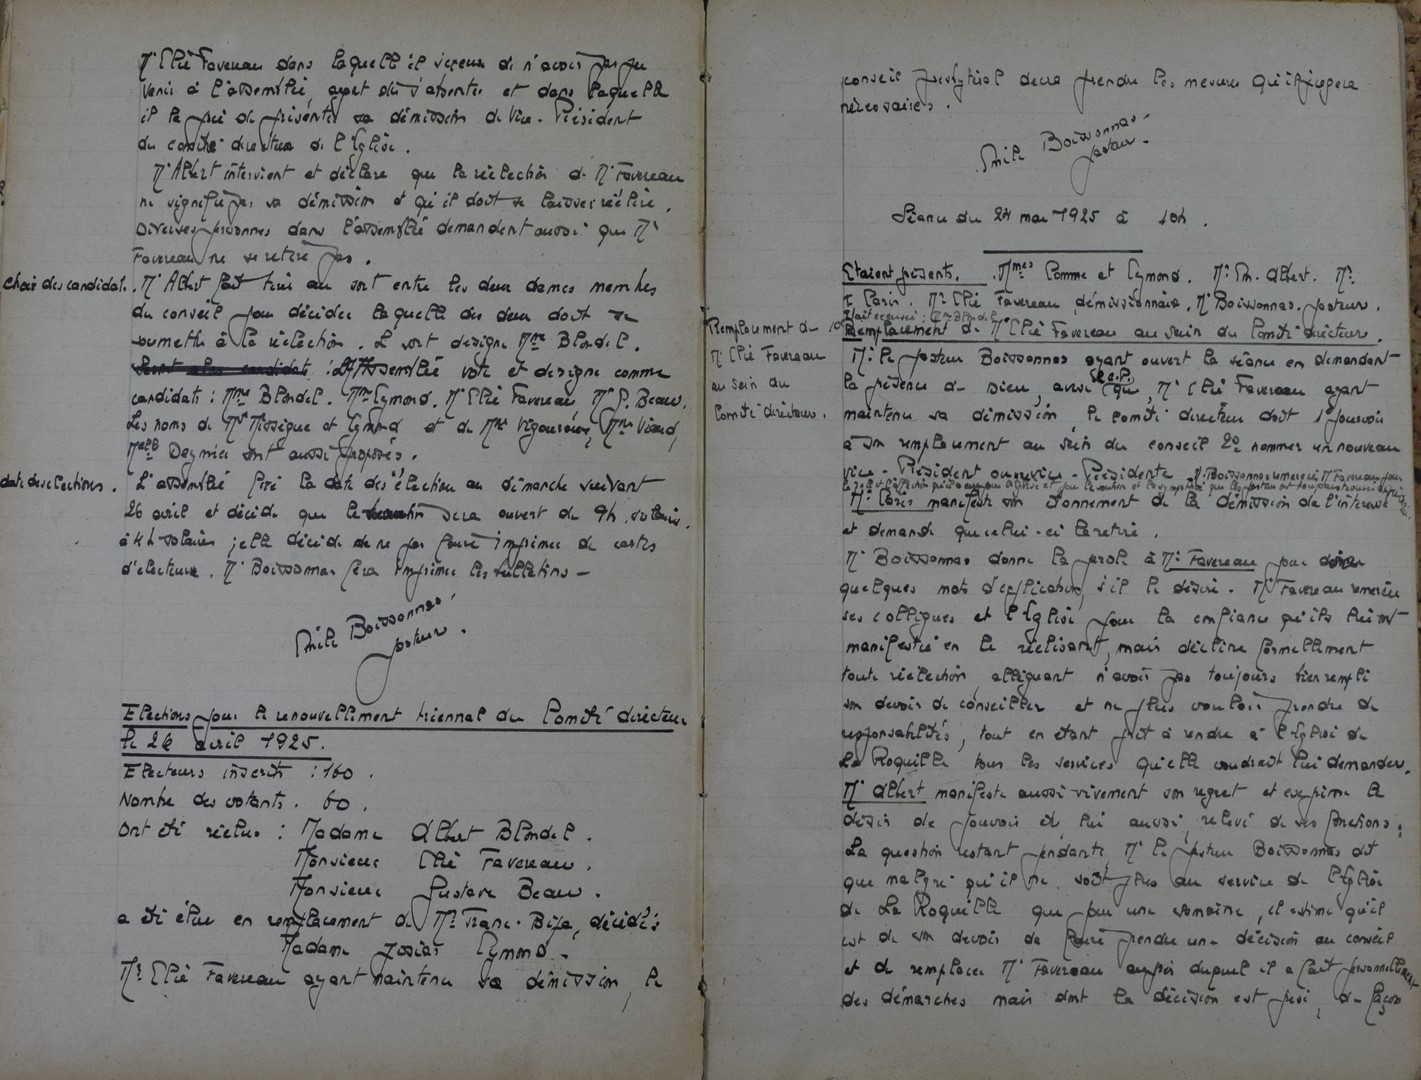 Mr Elié Favereau dans laquelle il s'excuse de n'avoir pas pu
venir à l'assemblée, ayant dû s'absenter et dans laquelle
il le prie de présenter sa démission de Vice-Président
du comité directeur de l'Eglise.
Mr Albert intervient et déclare que la réélection de Mr Favereau
ne signifie pas sa démission et qu'il doit se laisser réélire.
Diverses personnes dans l'assemblée demandent aussi que Mr
Favereau ne se retire pas.
Choix des candidats. Mr Albert fait tirer au sort entre les deux dames membres
du conseil pour décider laquelle des deux doit se
soumettre à la réélection. Le sort désigne Mme Blondel.
L'Assemblée vote et désigne comme
candidats : Mme Blondel. Mme Eymond. Mr Elié Favereau, Mr G. Beau.
Les noms de Mr Missigue et Eymond et de Mme Vigouroux, Mme Viaud,
Melle Deymier sont aussi proposés.
date des élections. L'assemblée fixe la date des élection au dimanche suivant
26 avril et décide que le scrutin sera ouvert de 9h. solaire
à 11h solaires ; elle décide de ne pas faire imprimer de cartes
d'électeurs. Mr Boissonnas fera imprimer les bulletins -
Emile Boissonnas
pasteur.
Elections pour le renouvellement triennal du Comité directeur
le 26 avril 1925.
Electeurs inscrits : 160.
Nombre des votants. 60.
Ont été réélus : Madame Albert Blondel.
Monsieur Elié Favereau.
Monsieur Gustave Beau.
a été élue en remplacement de Mr Franc. décédé :
Madame Josias Eymond.
Mr Elié Favereau ayant maintenu sa démission, le
conseil presbytéral devra prendre les mesures qu'il jugera
nécessaires.
Emile Boissonnas
pasteur.
Séance du 24 mai 1925 à 10h.
Etaient présents. Mmes Pomme et Eymond. Mr Em. Albert. Mr
Paris. Mr Elié Favereau, démissionnaire. Mr Boissonnas. pasteur.
Etait excusée : Mme Blondel
Remplacement du
Mr Elié Favereau
au sein du
Comité directeur.
Remplacement de Mr Elié Favereau au sein du Comité directeur.
Mr le pasteur Boissonnas ayant ouvert la séance en demandant
la présence de Dieu, avise le C.P. que, Mr Elié Favereau ayant
maintenu sa démission, le comité directeur doit 1° pourvoir
à son remplacement au sein du conseil 2° nommer un nouveau
vice-Président ou vice-Présidente. Mr Boissonnas remercie Mr Favereau pour
Mr Paris manifeste son étonnement de la démission de l'intéressé
et demande que celui-ci la retire.
Mr Boissonnas donne la parole à Mr Favereau pour dire
quelques mots d'explication, s'il le désire. Mr Favereau remercie
ses collègues et l'Eglise pour la confiance qu'ils lui ont
manifestée en le réélisant, mais décline formellement
toute réélection, alléguant n'avoir pas toujours bien rempli
son devoir de conseiller et ne plus vouloir prendre de
responsabilités, tout en étant prêt à rendre à l'Eglise de
La Roquille tous les services qu'elle voudrait lui demander.
Mr Albert manifeste aussi vivement son regret et exprime le
désir de pouvoir être, lui aussi, relevé de ses fonctions.
La question restant pendante, Mr le pasteur Boissonnas dit
que malgré qu'il ne soit plus au service de l'Eglise
de La Roquille que pour une semaine, il estime qu'il
est de son devoir de faire prendre une décision au conseil
et de remplacer Mr Favereau auprès duquel il a fait personnellement
des démarches mais dont la décision est prise, de façon